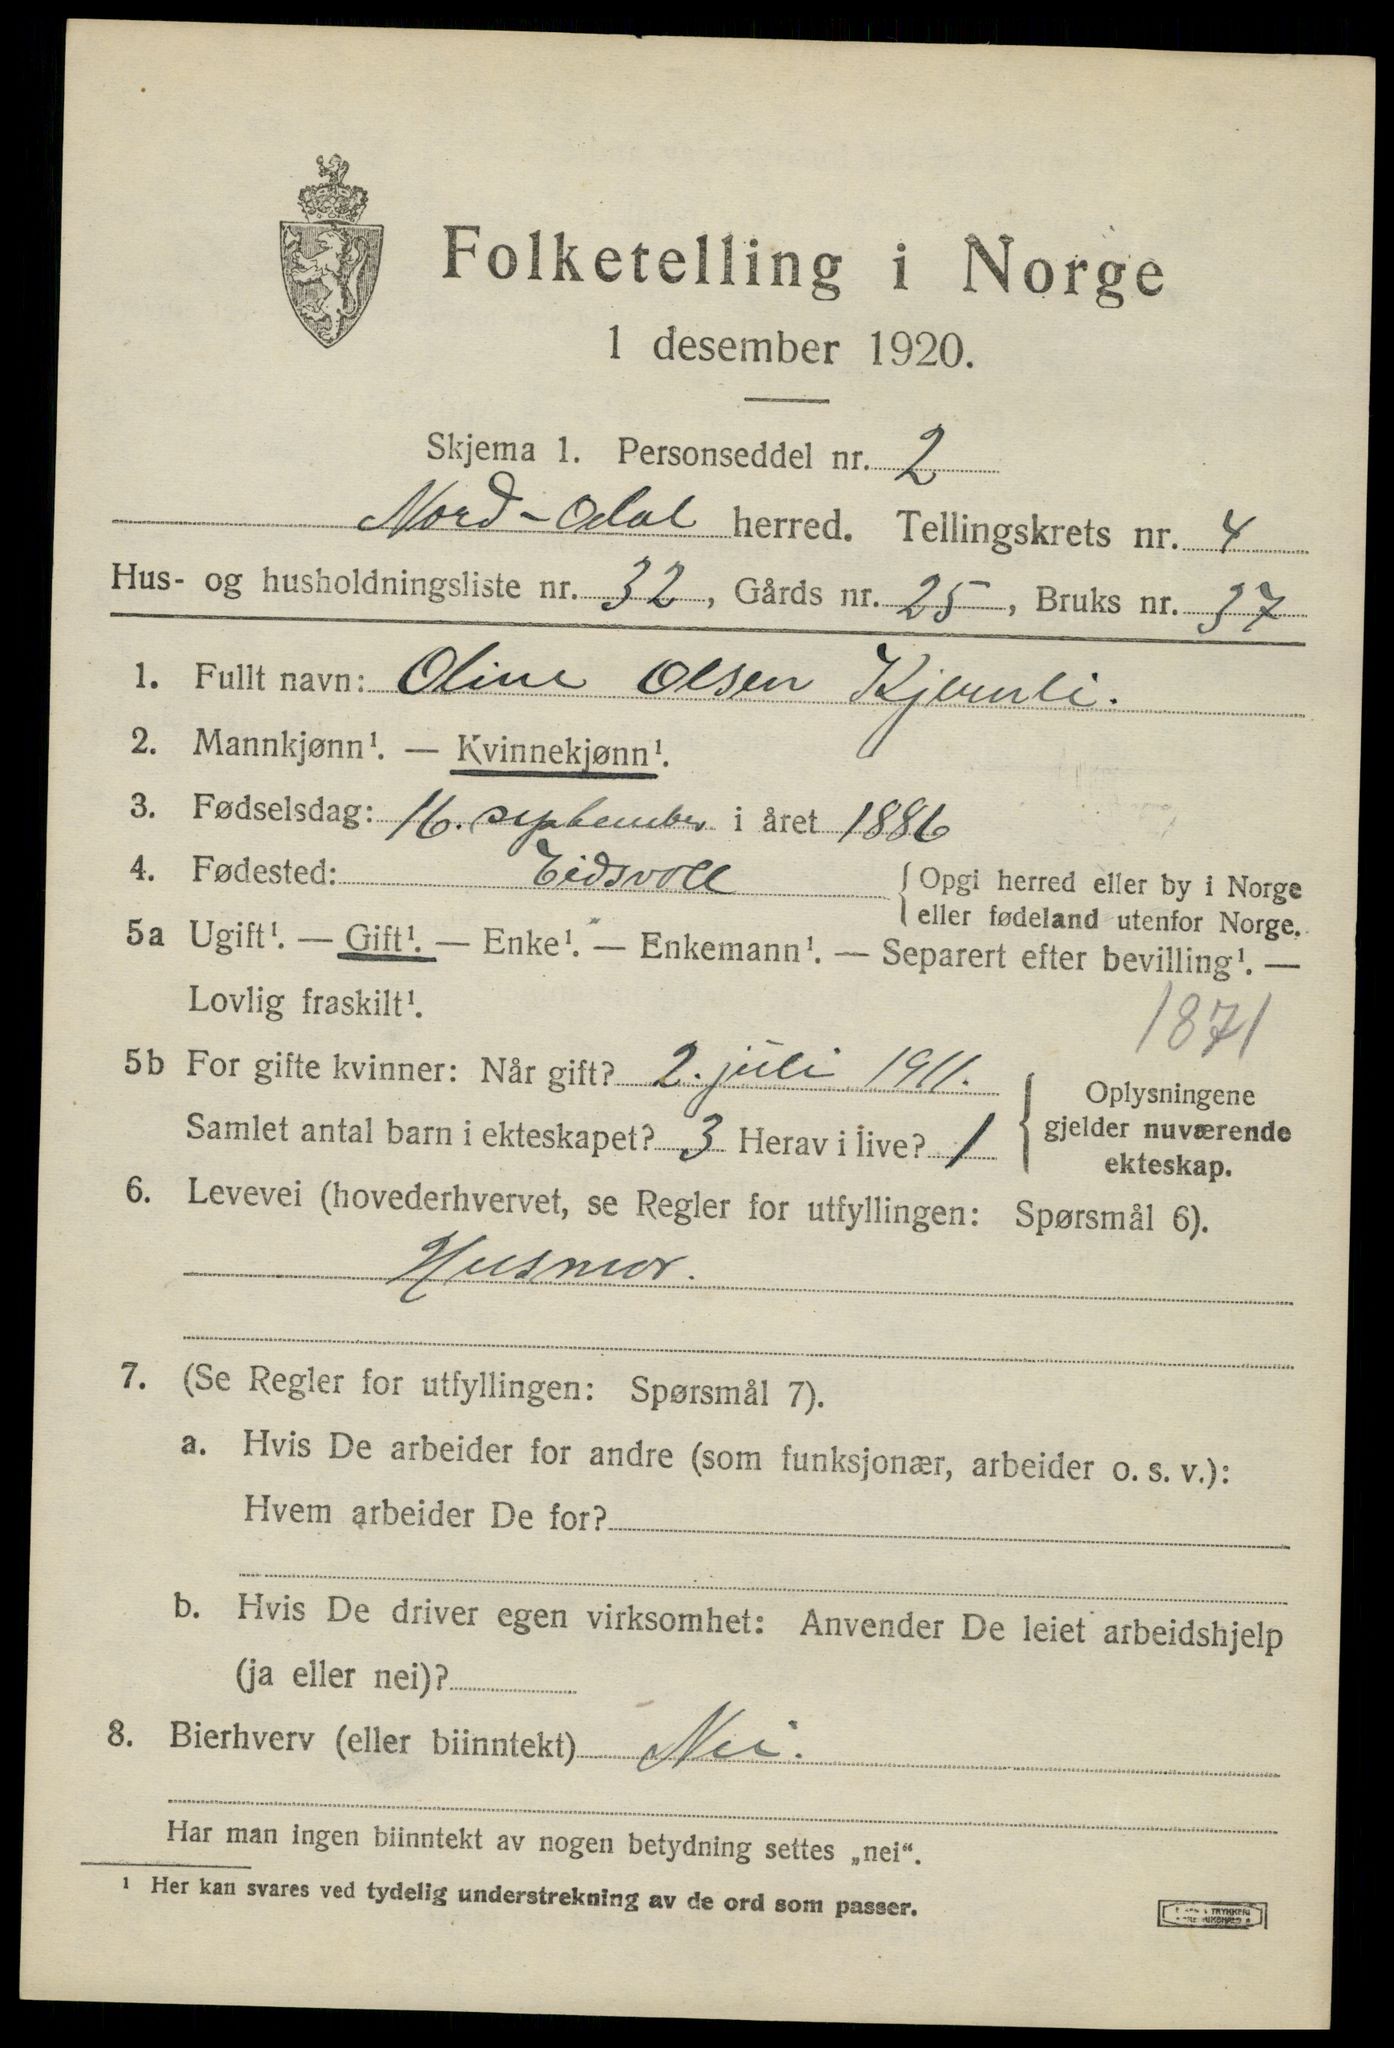 Folketelling i Norge
1 desember 1920.
Skjema 1. Personseddel nr. 2
Nord-Odal herred. Tellingskrets nr. 4
Hus- og husholdningsliste nr. 32, Gårds nr. 25, Bruks nr. 37
1. Fullt navn: Oline Olsen Kjernli.
2. Mannkjønn¹. — Kvinnekjønn¹.
3. Fødselsdag: 16. september i året 1886
4. Fødested: Eidsvoll { Opgi herred eller by i Norge
eller fødeland utenfor Norge.
5a Ugift¹. — Gift¹. — Enke¹. — Enkemann¹. — Separert efter bevilling¹. —
Lovlig fraskilt¹.
1871
5b For gifte kvinner: Når gift? 2. juli 1911.
Samlet antal barn i ekteskapet? 3 Herav i live? 1
{ Oplysningene
gjelder nuværende
ekteskap.
6. Levevei (hovederhvervet, se Regler for utfyllingen: Spørsmål 6).
Husmor.
7. (Se Regler for utfyllingen: Spørsmål 7).
a. Hvis De arbeider for andre (som funksjonær, arbeider o. s. v.):
Hvem arbeider De for?
b. Hvis De driver egen virksomhet: Anvender De leiet arbeidshjelp
(ja eller nei)?
8. Bierhverv (eller biinntekt) Nei.
Har man ingen biinntekt av nogen betydning settes „nei“.
¹ Her kan svares ved tydelig understrekning av de ord som passer.